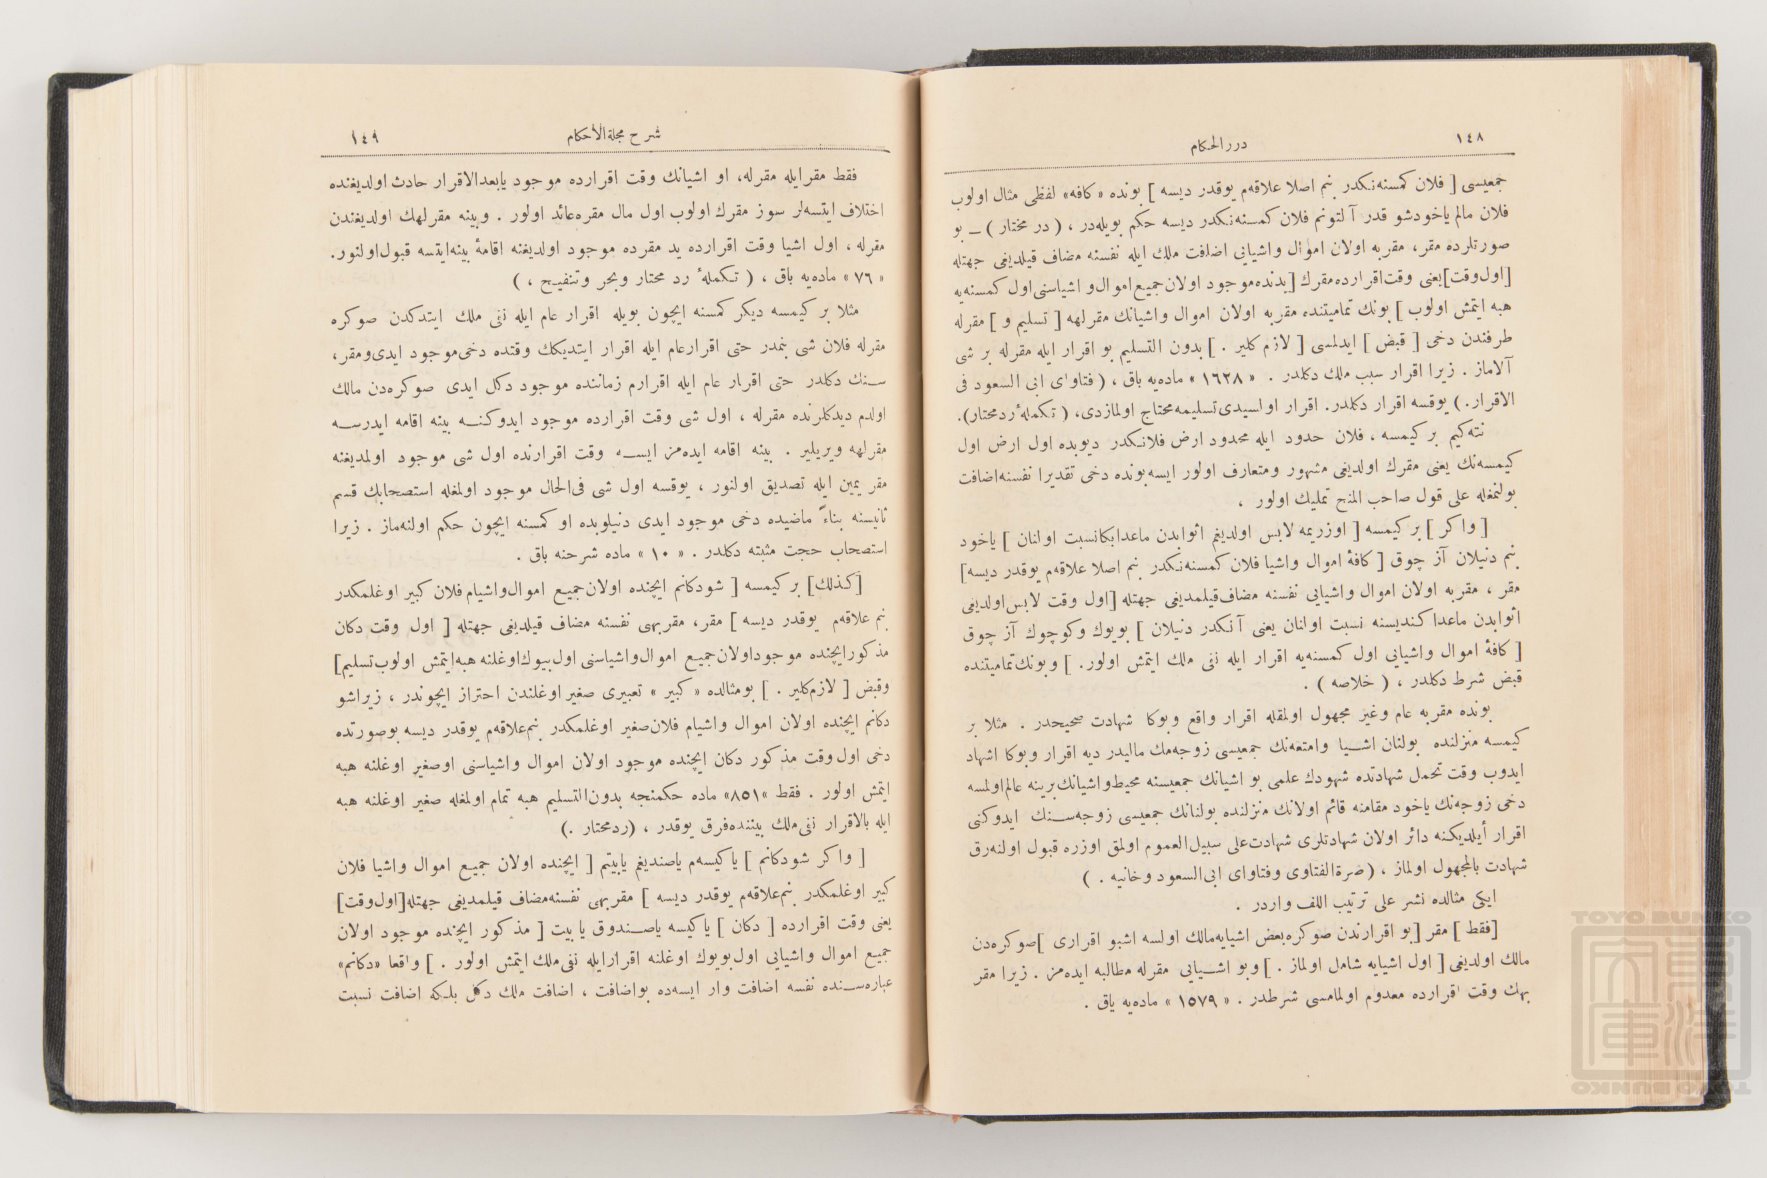 ١٤٨
درر الحكام
جمعيسى [ فلان كمسنه‌نكدر بنم اصلا علاقه‌م يوقدر ديسه ] بونده « كافه » لفظى مثال اولوب
فلان مالم ياخود شو قدر آلتونم فلان كمسنه‌نكدر ديسه حكم بويله‌در ، ( در مختار ) — بو
صورتلرده مقر، مقربه اولان اموال واشيايى اضافت ملك ايله نفسنه مضاف قيلديغى جهتله
[اول وقت] يعنى وقت اقرارده مقرك [يدنده موجود اولان جميع اموال و اشياسنى اول كمسنه‌يه
هبه ايتمش اولوب ] بونك تماميتنده مقربه اولان اموال واشيانك مقرلهه [ تسليم و ] مقرله
طرفندن دخى [ قبض ] ايدلمسى [ لازم كلير . ] بدون التسليم بو اقرار ايله مقرله بر شى
آلاماز . زيرا اقرار سبب ملك دكلدر . « ١٦٢٨ » ماده‌يه باق ، ( فتاواى ابى السعود فى
الاقرار. ) يوقسه اقرار دكلدر. اقرار اولسيدى تسليمه محتاج اولمازدى، ( تكملهٔ رد محتار).
نته‌كيم بر كيمسه ، فلان حدود ايله محدود ارض فلانكدر ديوبده اول ارض اول
كيمسه‌نك يعنى مقرك اولديغى مشهور ومتعارف اولور ايسه بونده دخى تقديرا نفسنه اضافت
بولنمغله على قول صاحب المنح تمليك اولور ،
[ واكر ] بر كيمسه [ اوزريمه لابس اولديغم اثوابدن ماعدا بكا نسبت اولنان ] ياخود
بنم دنيلان آز چوق [ كافهٔ اموال واشيا فلان كمسنه‌نكدر بنم اصلا علاقه‌م يوقدر ديسه]
مقر ، مقربه اولان اموال واشيايى نفسنه مضاف قيلمديغى جهتله [اول وقت لابس اولديغى
اثوابدن ماعدا كنديسنه نسبت اولنان يعنى آنكدر دنيلان ] بويوك وكوچوك آز چوق
[ كافهٔ اموال واشيايى اول كمسنه‌يه اقرار ايله نفى ملك ايتمش اولور. ] وبونك تماميتنده
قبض شرط دكلدر ، ( خلاصه ) .
بونده مقربه عام وغير مجهول اولمقله اقرار واقع وبوكا شهادت صحيحدر . مثلا بر
كيمسه منزلنده بولنان اشيا وامتعه‌نك جمعيسى زوجه‌مك ماليدر ديه اقرار وبوكا اشهاد
ايدوب وقت تحمل شهادتده شهودك علمى بو اشيانك جمعيسنه محيط واشيانك برينه عالم اولمسه
دخى زوجه‌نك ياخود مقامنه قائم اولانك منزلنده بولنانك جمعيسى زوجه‌سنك ايدوكنى
اقرار أيلديكنه دائر اولان شهادتلرى شهادت على سبيل العموم اولمق اوزره قبول اولنه‌رق
شهادت بالمجهول اولماز ، ( ضرة الفتاوى وفتاواى ابى السعود وخانيه . )
ايكى مثالده نشر على ترتيب اللف واردر .
[فقط ] مقر [بو اقرارندن صوكره بعض اشيايه مالك اولسه اشبو اقرارى ]صوكره‌دن
مالك اولديغى [ اول اشيايه شامل اولماز . ] وبو اشيايى مقرله مطالبه ايده‌مز . زيرا مقر
بهك وقت اقرارده معدوم اولمامسى شرطدر . « ١٥٧٩ » ماده‌يه باق .
شرح مجلة الأحكام
١٤٩
فقط مقر ايله مقرله، او اشيانك وقت اقرارده موجود يا بعد الاقرار حادث اولديغنده
اختلاف ايتسه‌لر سوز مقرك اولوب اول مال مقره عائد اولور . وبينه مقرلهك اولديغندن
مقرله ، اول اشيا وقت اقرارده يد مقرده موجود اولديغنه اقامهٔ بينه ايتسه قبول اولنور.
« ٧٦ » ماده‌يه باق ، ( تكملهٔ رد محتار وبحر وتنقيح ، )
مثلا بر كيمسه ديكر كمسنه ايچون بويله اقرار عام ايله نفى ملك ايتدكدن صوكره
مقرله فلان شى بنمدر حتى اقرار عام ايله اقرار ايتديكك وقتده دخى موجود ايدى ومقر،
سنك دكلدر حتى اقرار عام ايله اقرارم زماننده موجود دكل ايدى صوكره‌دن مالك
اولدم ديدكلرنده مقرله ، اول شى وقت اقرارده موجود ايدوكنه بينه اقامه ايدرسه
مقرلهه ويريلير . بينه اقامه ايده‌مز ايسه وقت اقرارنده اول شى موجود اولمديغنه
مقر يمين ايله تصديق اولنور ، يوقسه اول شى فى الحال موجود اولمغله استصحابك قسم
ثانيسنه بناءً ماضيده دخى موجود ايدى دنيلوبده او كمسنه ايچون حكم اولنه‌ماز . زيرا
استصحاب حجت مثبته دكلدر . « ١٠ » ماده شرحنه باق .
[كذلك] بر كيمسه [ شو دكانم ايچنده اولان جميع اموال واشيام فلان كبير اوغلمكدر
بنم علاقه‌م يوقدر ديسه ] مقر، مقربهى نفسنه مضاف قيلديغى جهتله [ اول وقت دكان
مذكور ايچنده موجود اولان جميع اموال واشياسنى اول بيوك اوغلنه هبه ايتمش اولوب تسليم]
وقبض [ لازم كلير . ] بو مثالده « كبير » تعبيرى صغير اوغلندن احتراز ايچوندر ، زيرا شو
دكانم ايچنده اولان اموال واشيام فلان صغير اوغلمكدر بنم علاقه‌م يوقدر ديسه بو صورتده
دخى اول وقت مذكور دكان ايچنده موجود اولان اموال واشياسنى او صغير اوغلنه هبه
ايتمش اولور . فقط «٨٥١» ماده حكمنجه بدون التسليم هبه تمام اولمغله صغير اوغلنه هبه
ايله بالاقرار نفى ملك بيننده فرق يوقدر ، (رد محتار .)
[ واكر شو دكانم ] يا كيسه‌م يا صنديغم يا بيتم [ ايچنده اولان جميع اموال واشيا فلان
كبير اوغلمكدر بنم علاقه‌م يوقدر ديسه ] مقربهى نفسنه مضاف قيلمديغى جهتله [اول وقت]
يعنى وقت اقرارده [ دكان ] يا كيسه يا صندوق يا بيت [ مذكور ايچنده موجود اولان
جميع اموال واشيايى اول بويوك اوغلنه اقرار ايله نفى ملك ايتمش اولور . ] واقعا «دكانم»
عباره‌سنده نفسه اضافت وار ايسه‌ده بو اضافت ، اضافت ملك دكل بلكه اضافت نسبت
TOYO BUNKO